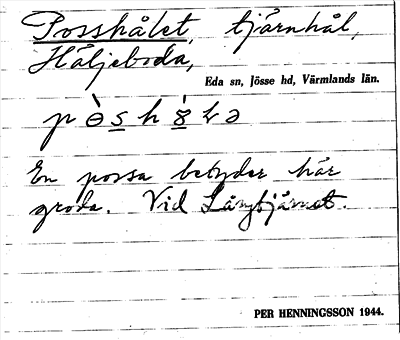 Posshålet, tjärnhål,
Häljeboda,
Eda sn, Jösse hd, Värmlands län.
En possa betyder här
groda. Vid Långtjärnet.
PER HENNINGSSON 1944.